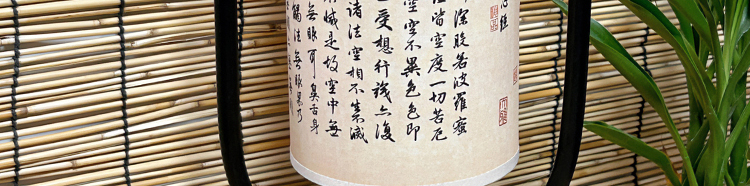 心經
深般若波羅蜜
皆空度一切苦厄
空空不異色色即
受想行識亦復
諸法空相不生滅
減是故空中無
無眼耳鼻舌身
觸法無眼界乃